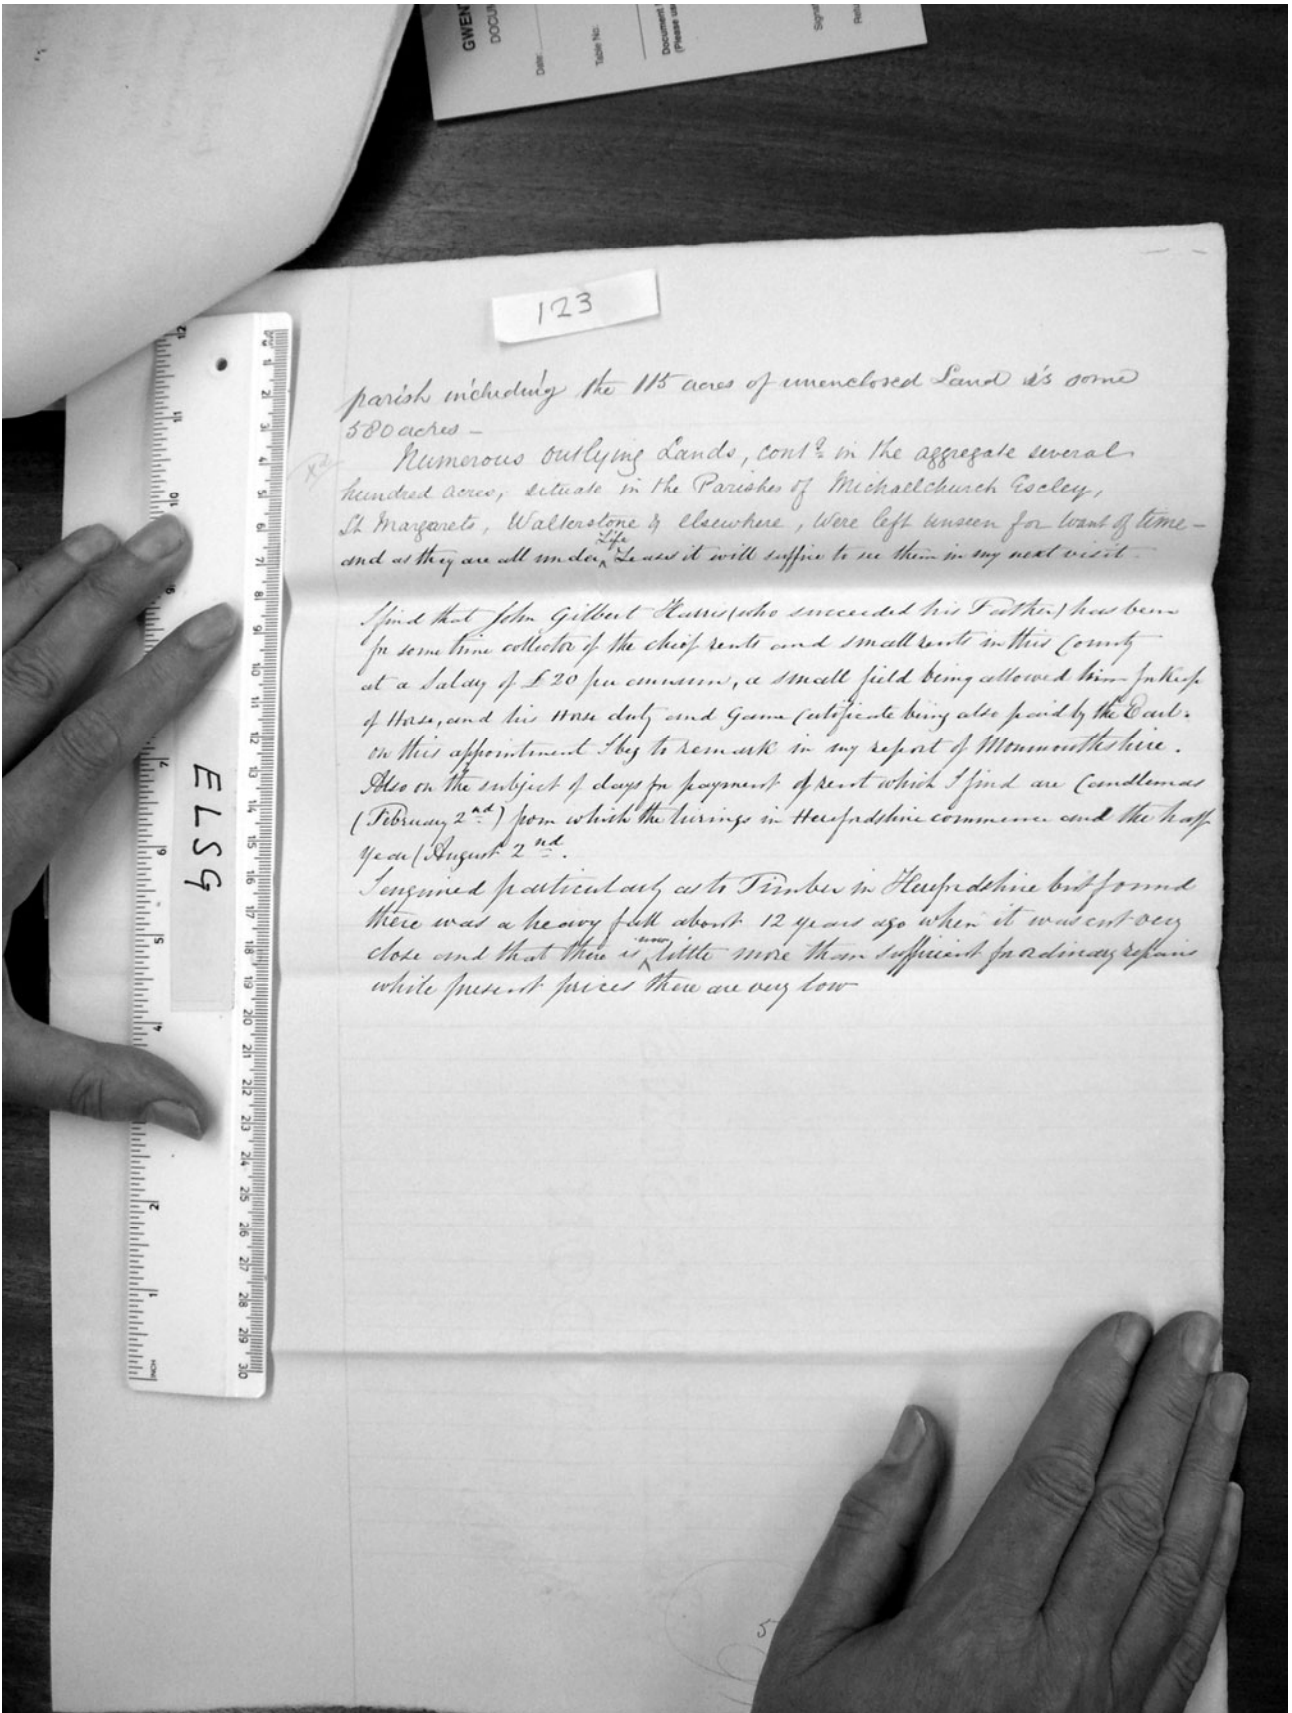 GWEN
DOCU
Date:
Table No:
Document
(Please us
Signa
Retu
123
parish including the 115 acres of unenclosed Land is some
580 acres –
Numerous outlying Lands, contg. in the aggregate several
hundred acres, situate in the Parishes of Michaelchurch Escley,
St. Margarets, Walterstone & elsewhere, were left unseen for want of time –
and as they are all under ^Life Leases it will suffice to see them in my next visit
I find that John Gilbert Harris (who succeeded his Father) has been
for some time collector of the chief rents and small rents in this County
at a Salary of £20 per annum, a small field being allowed him for Keep
of Horse, and his Horse duty and Game Certificate being also paid by the Earl.
on this appointment I beg to remark in my report of Monmouthshire.
Also on the subject of days for payment of rent which I find are Candlemas
(February 2nd) from which the hirings in Herefordshire commence and the half
year (August 2nd.
I enquired particularly as to Timber in Herefordshire but found
there was a heavy fall about 12 years ago when it was cut very
close and that there is ^now little more than sufficient for ordinary repairs
while present prices there are very low
ELSG
5